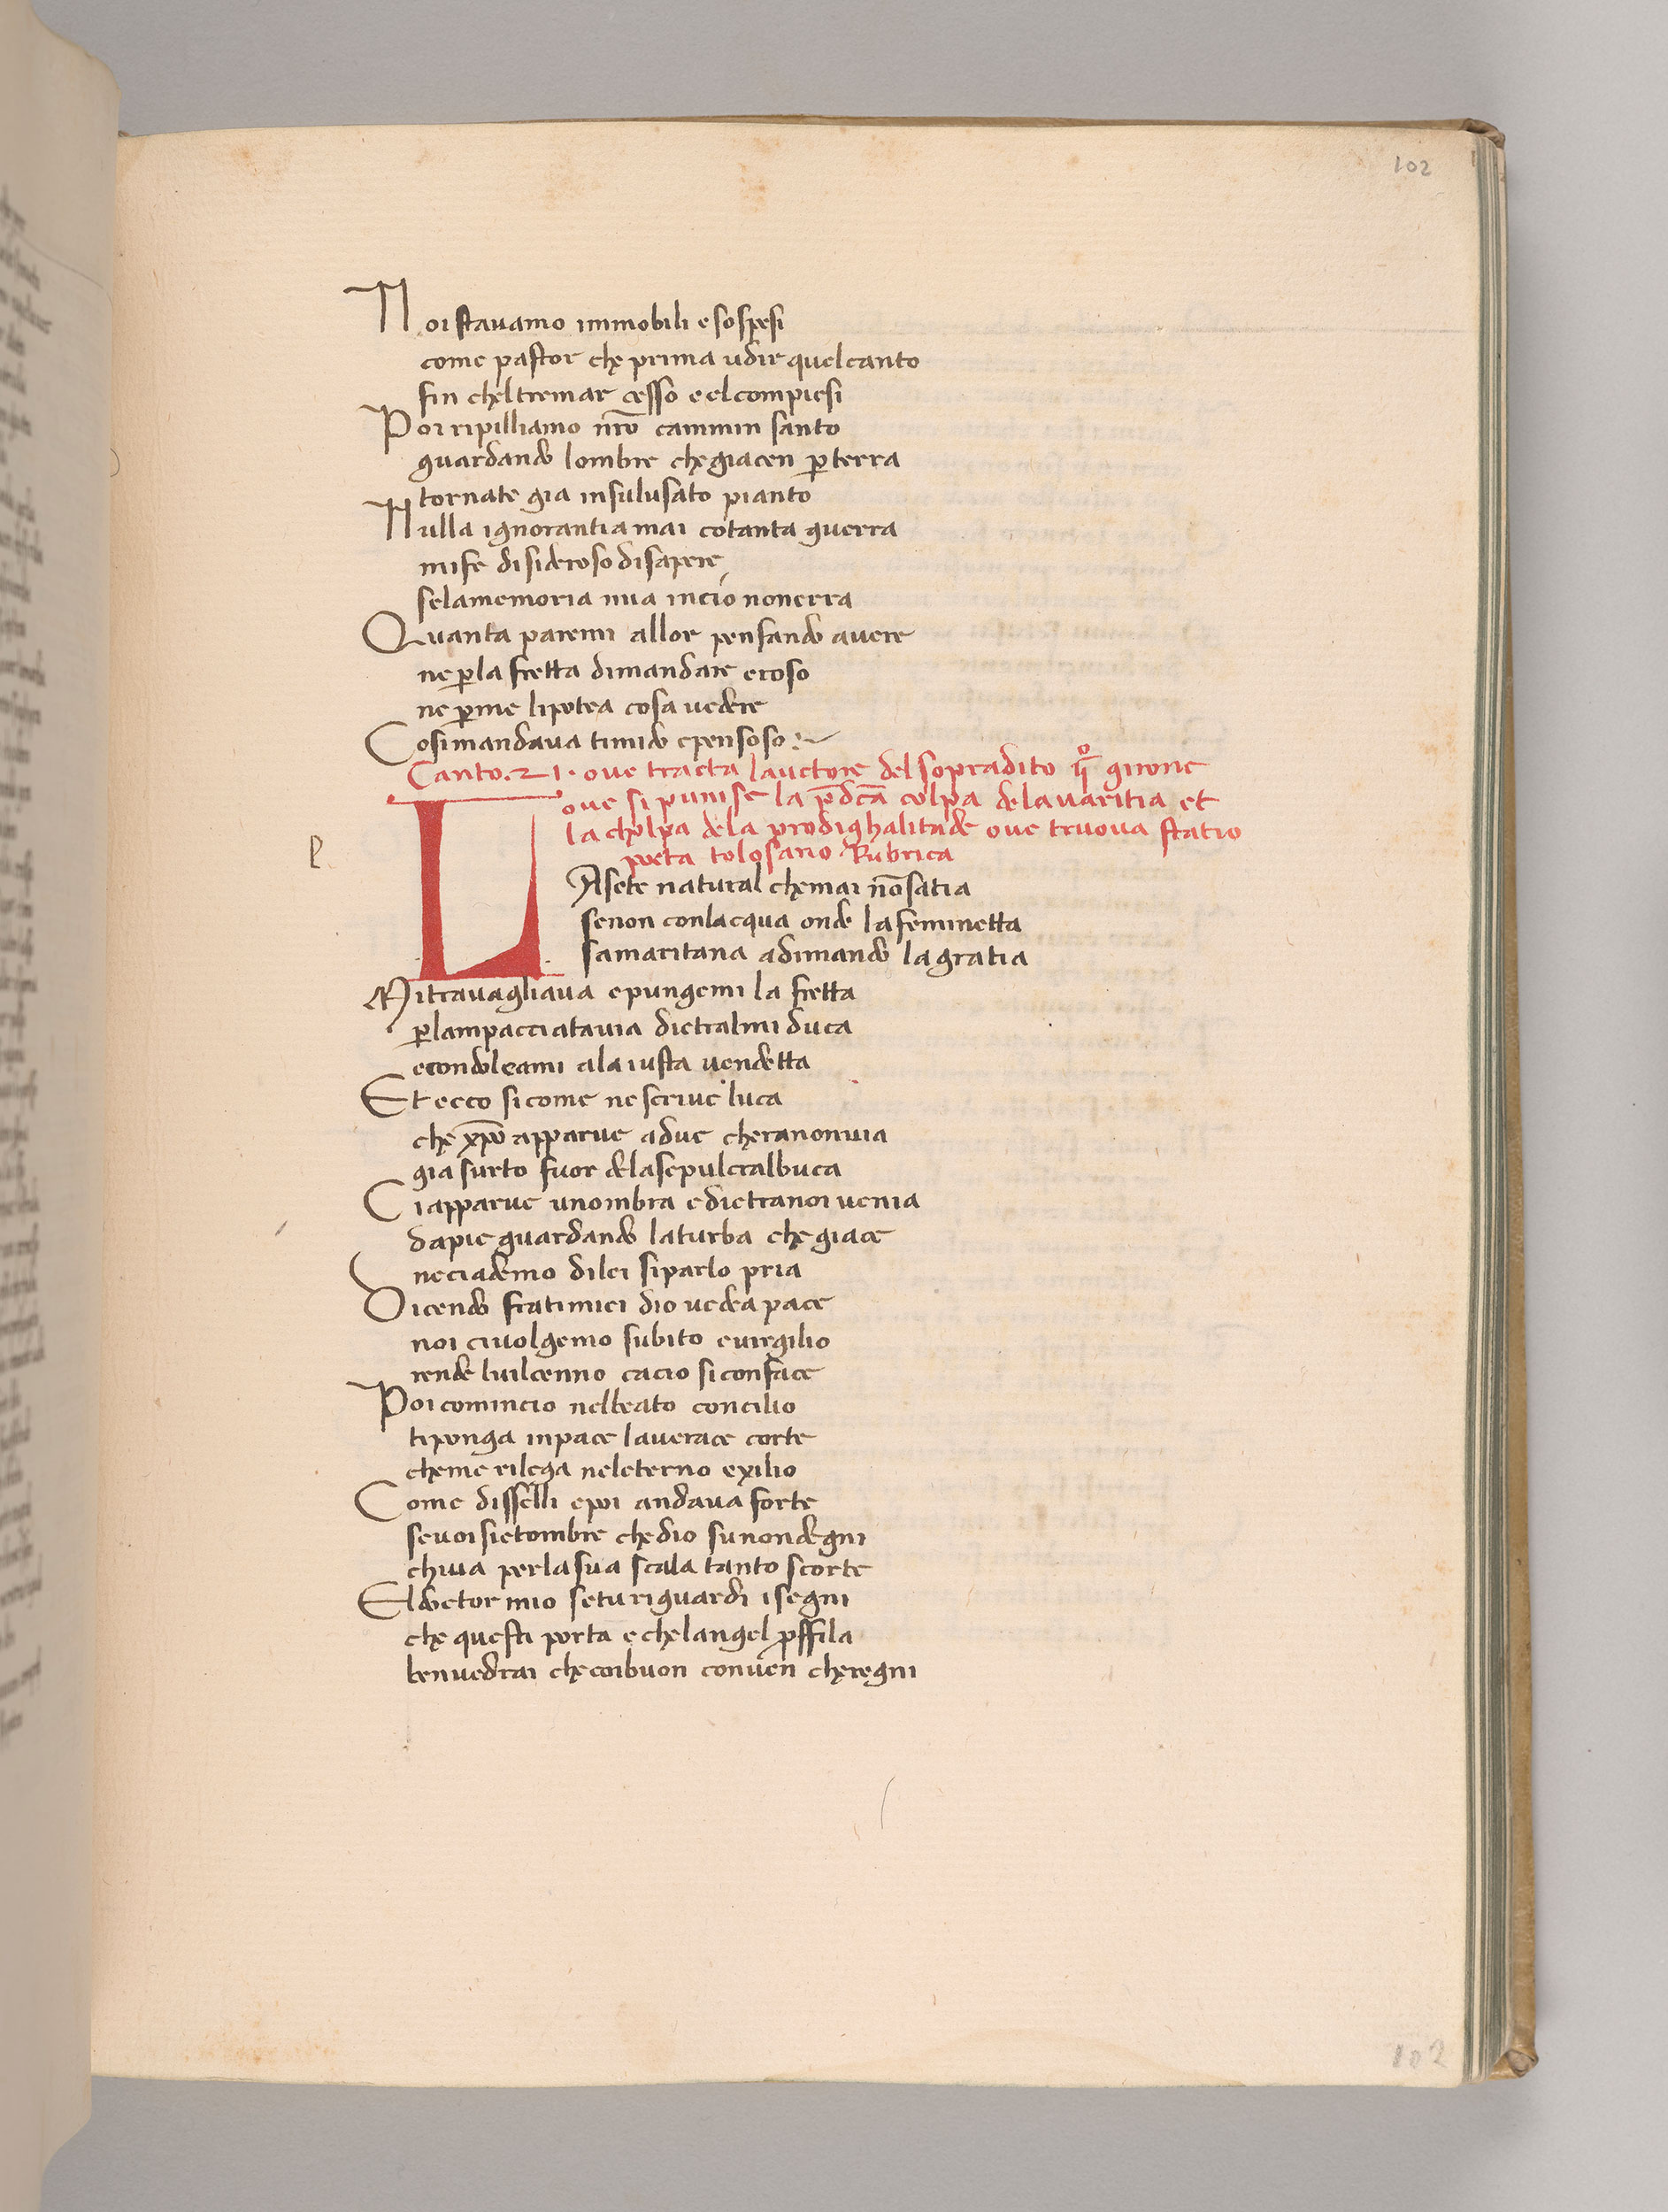 102
Noi stavamo immobili e sospesi
come pastor che prima udir quel canto
fin chel tremar cesso e el compiesi
Poi ripilliamo nr̅o cammin santo
guardando lombre che giacen ꝑ terra
tornate gia insulusato pianto
Nulla ignorantia mai cotanta guerra
mife disideroso disapere
selamemoria mia incio nonerra
Quanta paremi allor pensando avere
ne ꝑla fretta dimandare eroso
ne ꝑme lipotea cosa vedere
Cosimandava timido epensoso
Canto . 21 . ove tracta lauctore del sopradito qͦ girone
ove si punise la p̅dc̅a colpa delavaritia et
la cholpa dela prodighalitade ove truova statio
poeta tolosano Rubrica
LAsete natural chemai no̅satia
senon conlacqua onde lafeminetta
samaritana adimando lagratia
Mitravagliava epungemi la fretta
ꝑlampacciatavia dietralmi duca
econdoleami ala iusta vendetta
Et ecco sicome ne scrive luca
che xp̅o apparve adue cheranonvia
gia surto fuor delasepulcralbuca
Ciapparve unombra edietranoi venia
dapie guardando laturba che giace
neciademo dilei siparlo pria
Dicendo fratimiei dio vedea pace
noi civolgemo subito evirgilio
rende luilcenno cacio siconface
Poi comincio nelbeato concilio
tiponga inpace laverace corte
cheme rilega neleterno exilio
Come disselli epoi andava forte
sevoi sietombre chedio sunondegni
chiva perlasua scala tanto scorte
Eldoctor mio seturiguardi isegni
che questi porta echelangel ꝓffila
benvedrai checoibuon conven cheregni
102